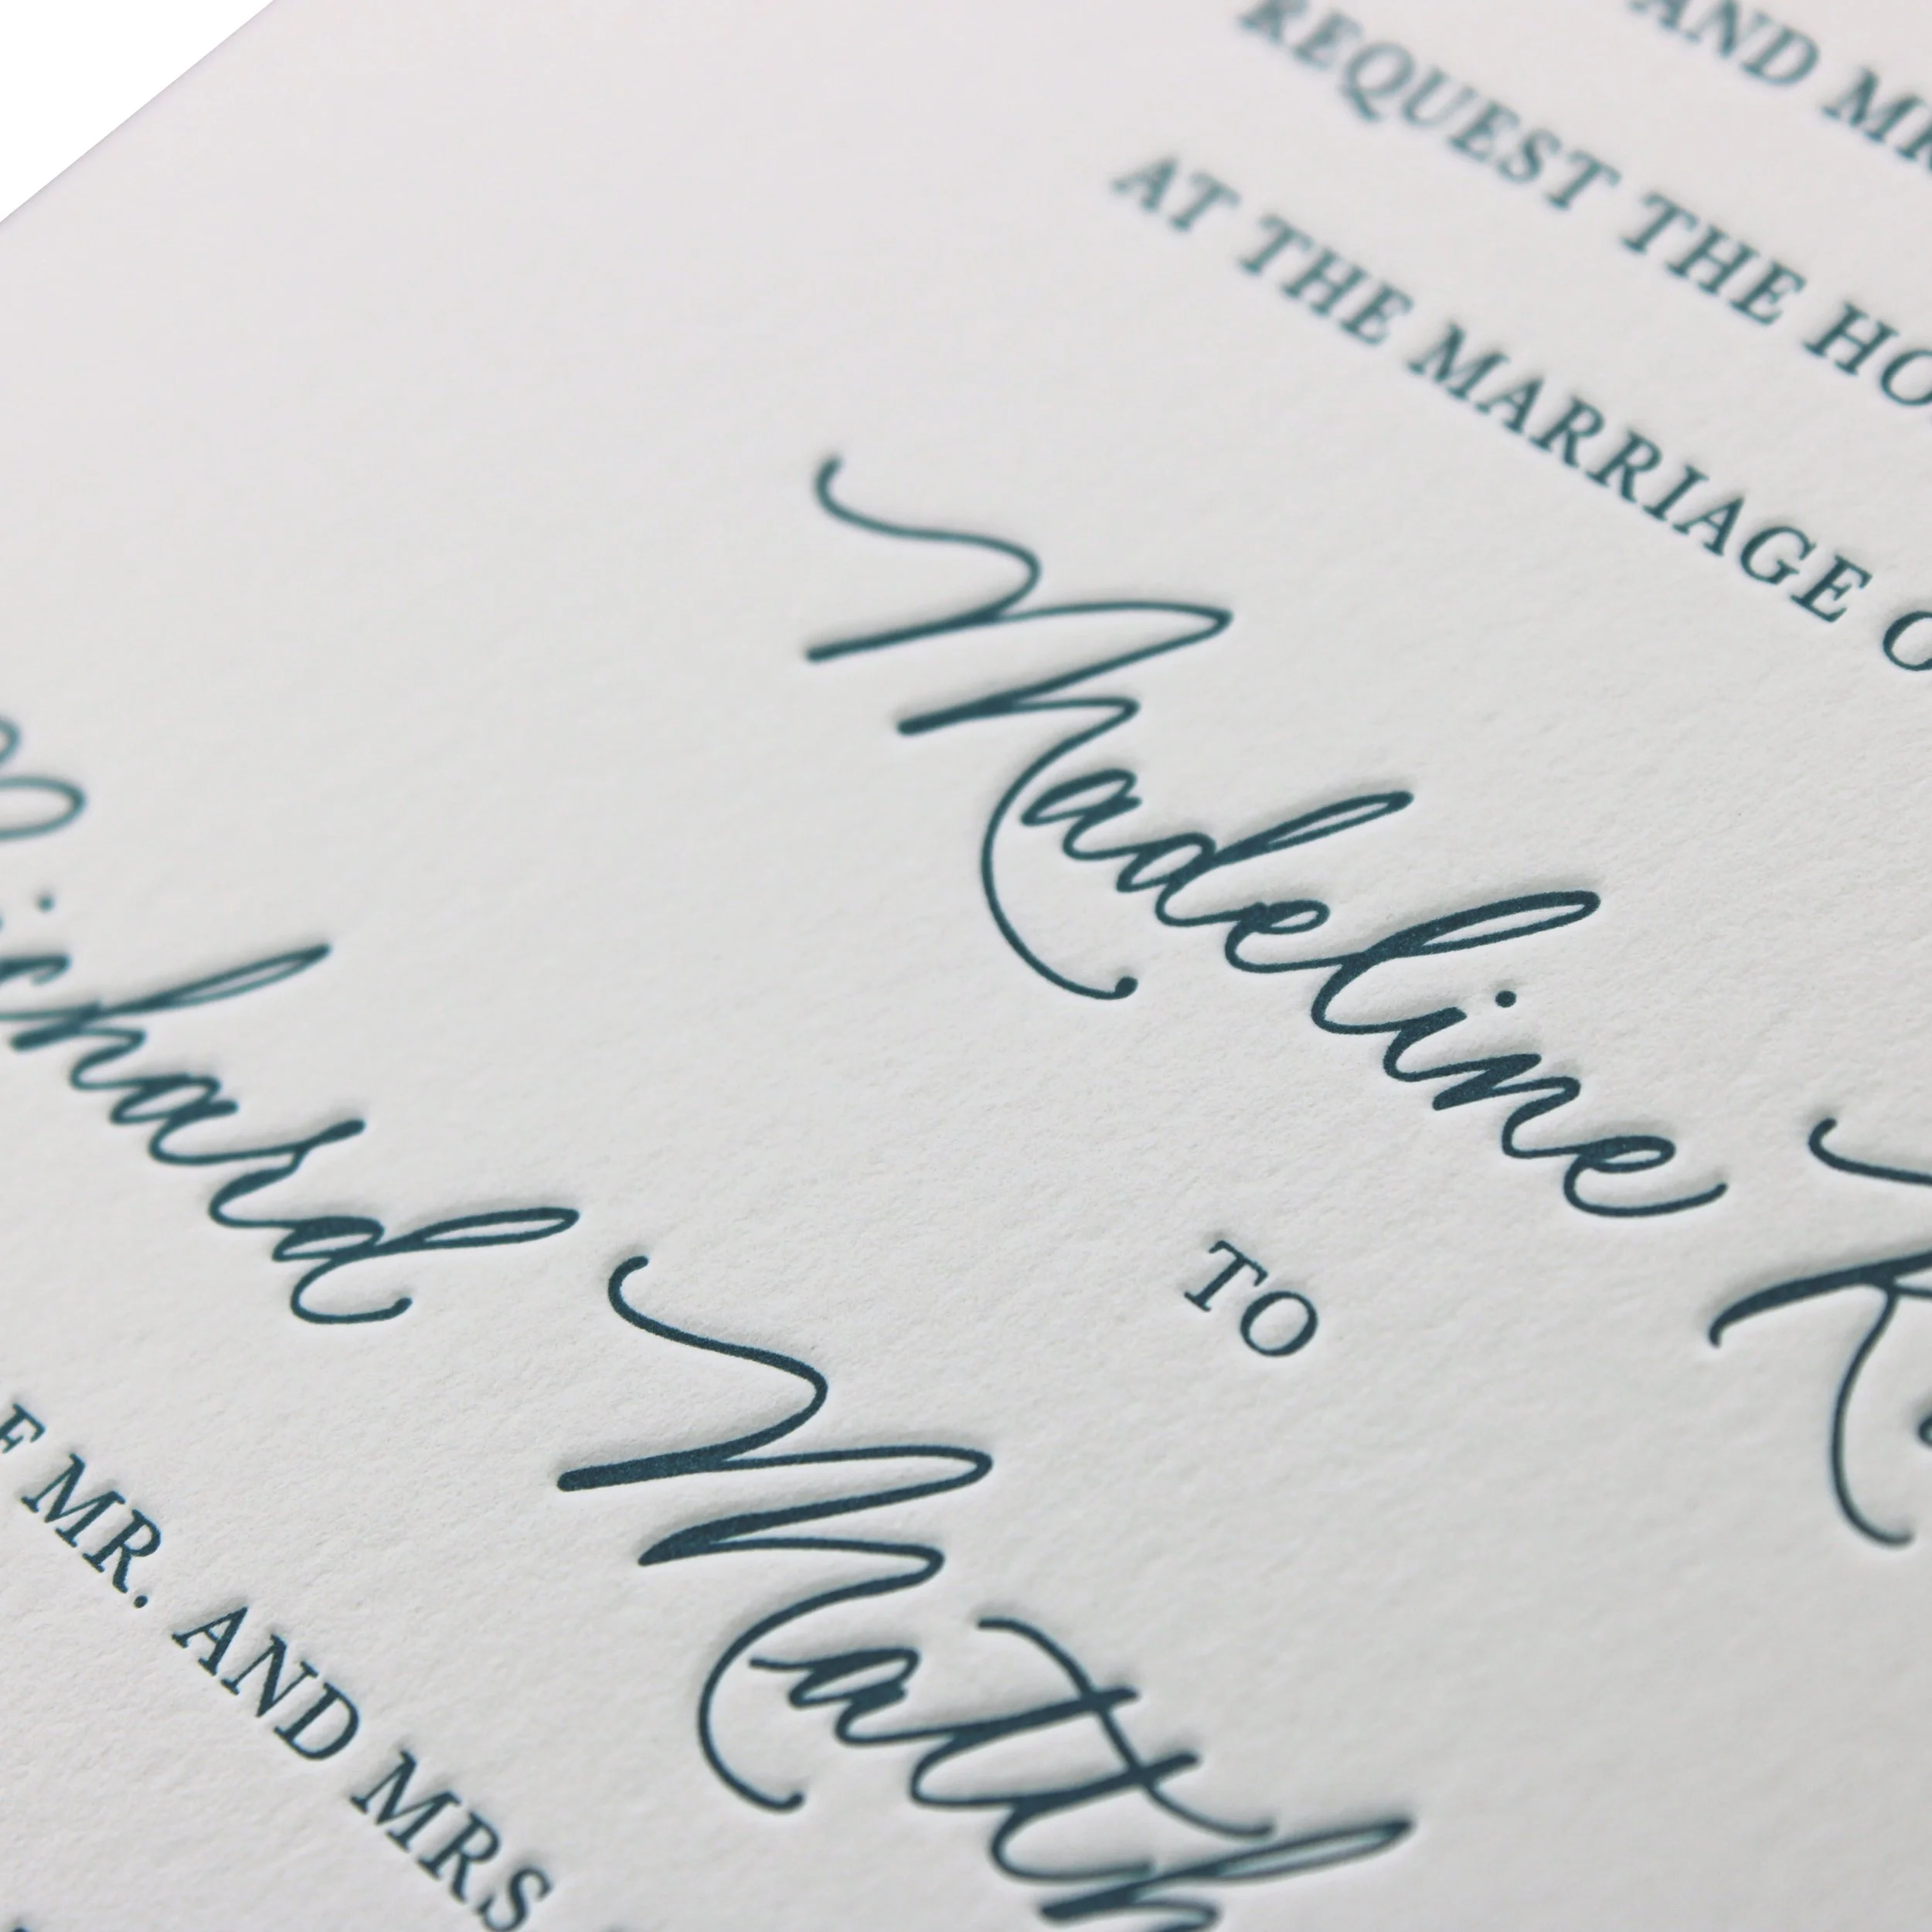 AND MR
REQUEST THE HO
AT THE MARRIAGE O
Madeline R
TO
ichard Matth
F MR. AND MRS